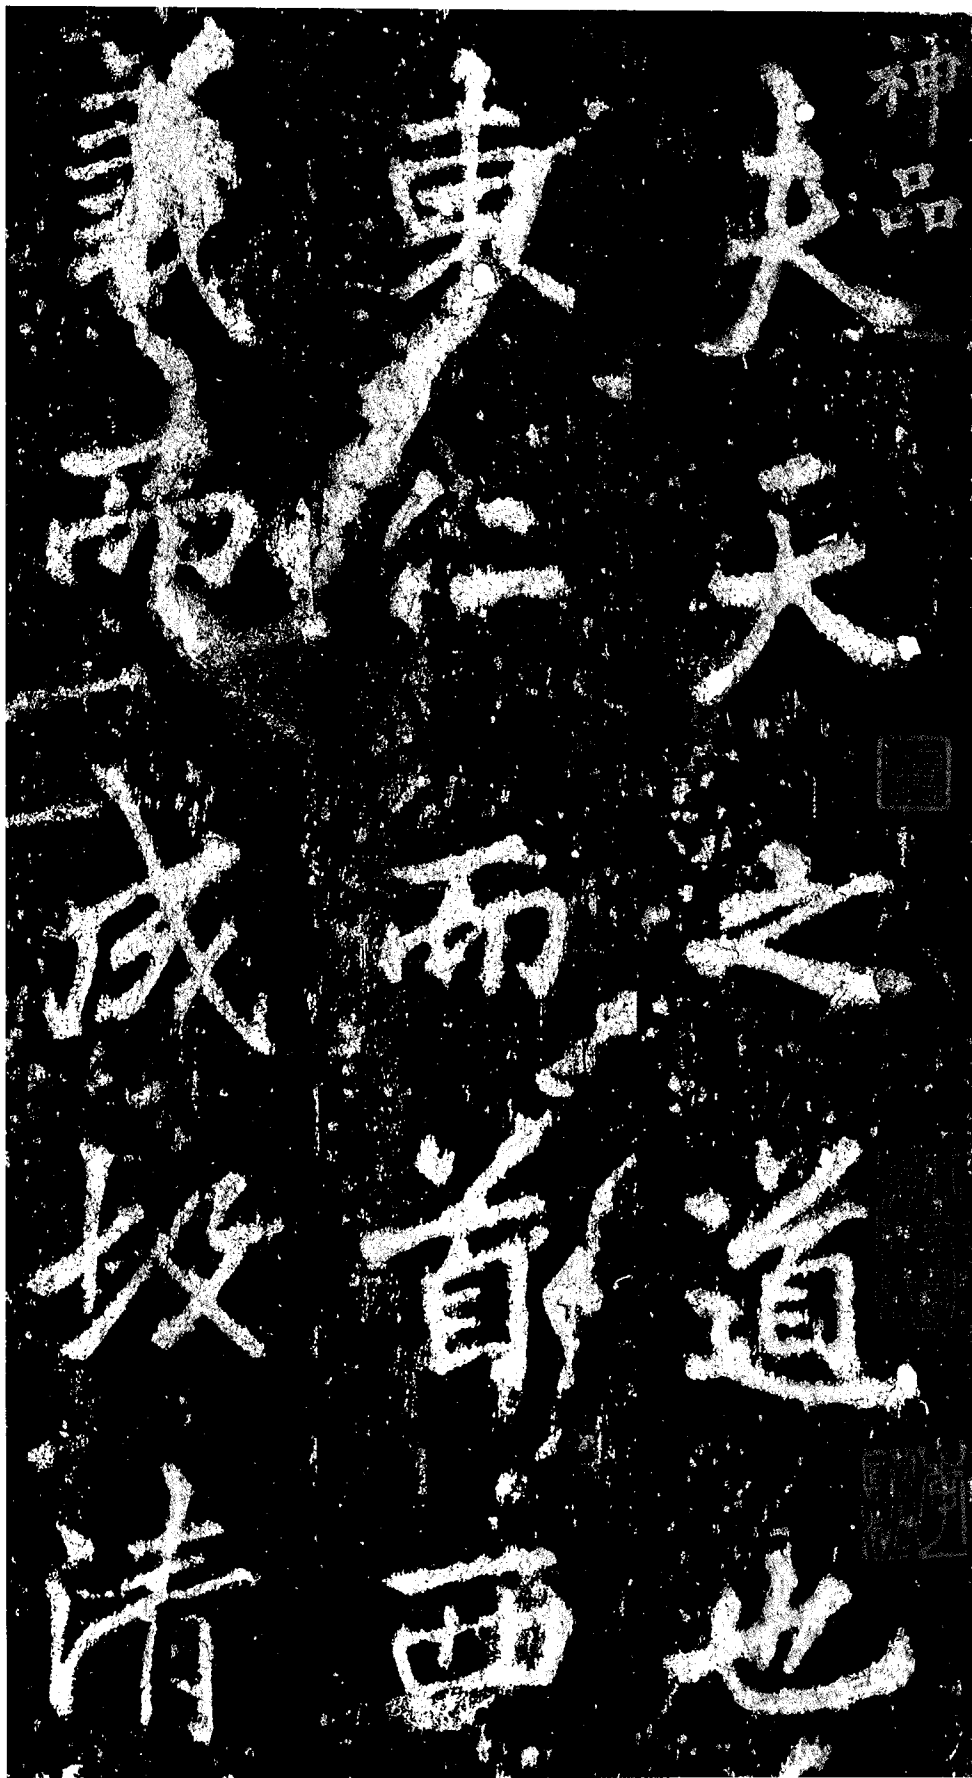 神品
夫天之道也
東仁而首西
義而成故清